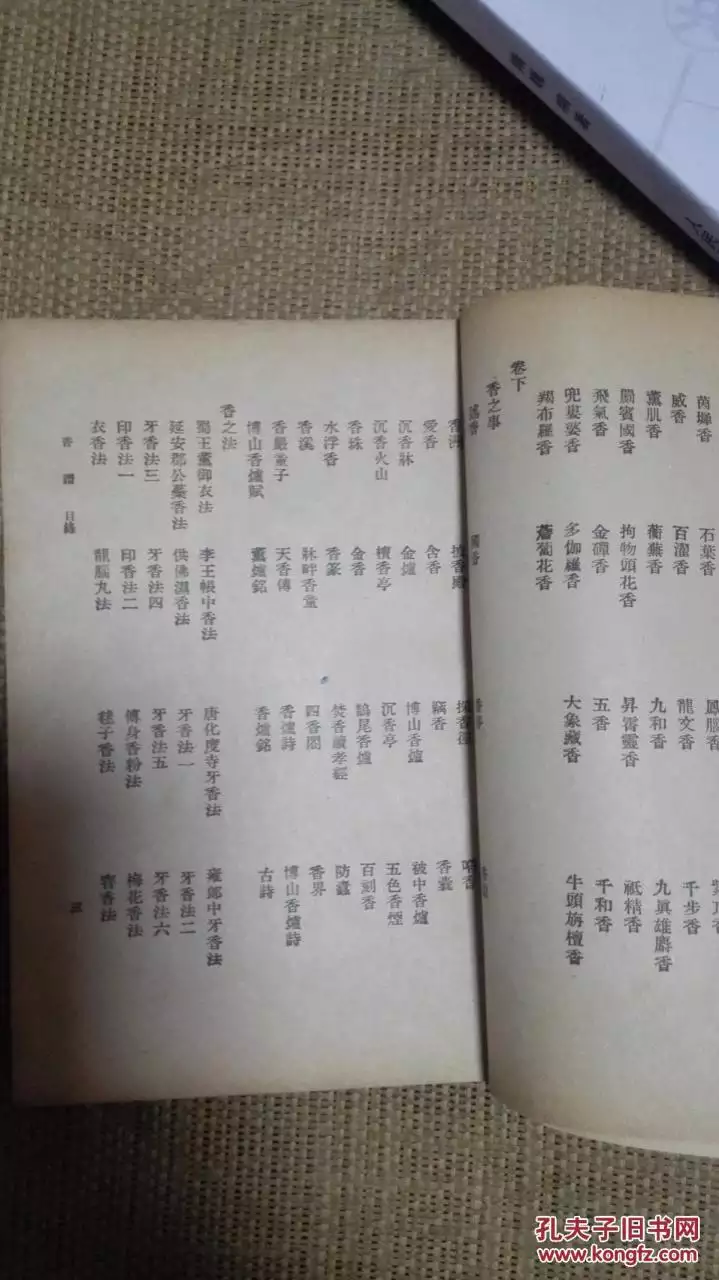 茵墀香 石葉香 鳳腦香
威香 百濯香 龍文香 千步香
薰肌香 蘅蕪香 九和香 九眞雄麝香
罽賓國香 拘物頭花香 昇霄靈香 祇精香
飛氣香 金磾香 五香 千和香
兜婁婆香 多伽羅香 大象藏香 牛頭旃檀香
羯布羅香 薝蔔花香
卷下
香之事
愛香 含香 竊香 香囊
沉香牀 金爐 博山香爐 被中香爐
沉香火山 檀香亭 沉香亭 五色香煙
香珠 金香 鵲尾香爐 百刻香
水浮香 香篆 焚香讀孝經 防蠹
香溪 牀畔香童 四香閣 香界
香嚴童子 天香傳 香爐詩 博山香爐詩
博山香爐賦 薰爐銘 香爐銘 古詩
香之法
蜀王薰御衣法 李王帳中香法 唐化度寺牙香法 雍郎中牙香法
延安郡公蕊香法 供佛濕香法 牙香法一 牙香法二
牙香法三 牙香法四 牙香法五 牙香法六
印香法一 印香法二 傅身香粉法 梅花香法
衣香法 龍腦丸法 毬子香法 窨香法
香譜 目錄 三
孔夫子旧书网
www.kongfz.com